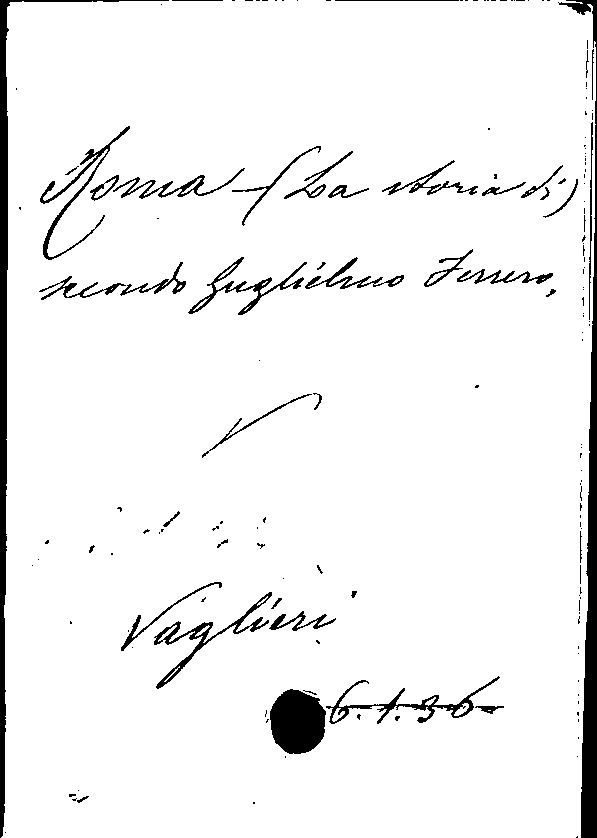 Roma - (La storia di)
secondo Guglielmo Ferrero,
V
Vaglieri
6.1.36